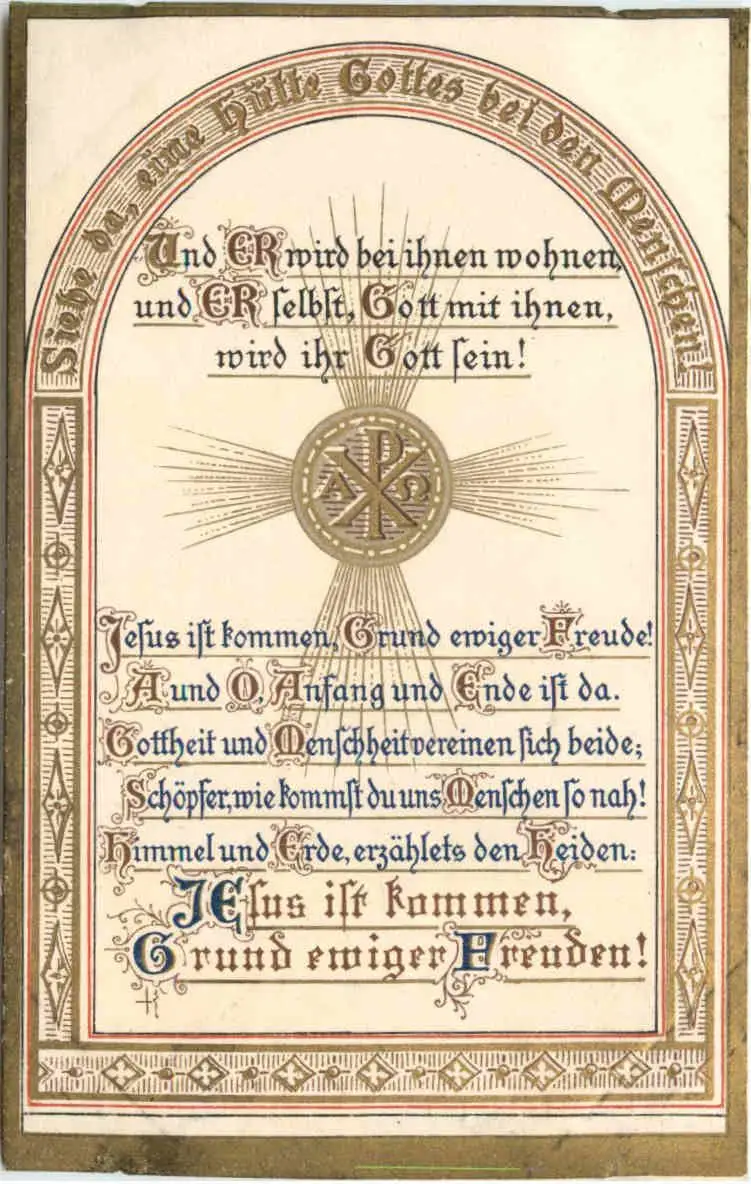 Siehe da, eine Hütte Gottes bei den Menschen!
Und ER wird bei ihnen wohnen,
und ER selbst, Gott mit ihnen,
wird ihr Gott sein!
Α Ω
Jesus ist kommen, Grund ewiger Freude!
A und O, Anfang und Ende ist da.
Gottheit und Menschheit vereinen sich beide;
Schöpfer, wie kommst du uns Menschen so nah!
Himmel und Erde, erzählets den Heiden:
JEsus ist kommen,
Grund ewiger Freuden!